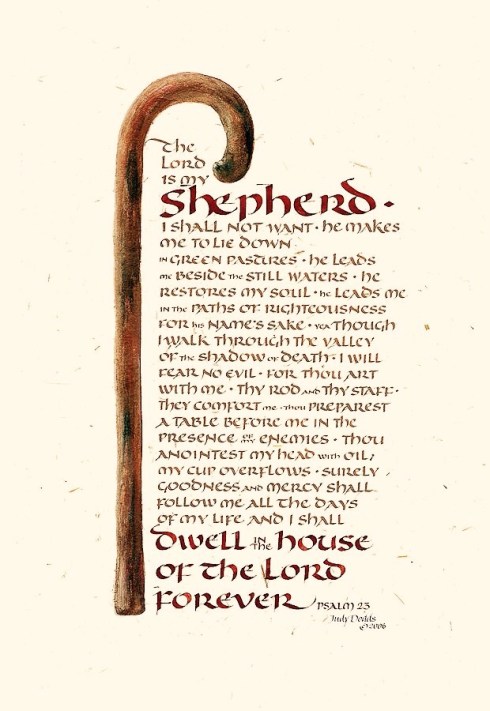 The
Lord
is my
Shepherd ·
I shall not want · he makes
me to lie down
in green pastures · he leads
me beside the still waters · he
restores my soul · he leads me
in the paths of righteousness
for his name's sake · yea though
I walk through the valley
of the shadow of death · I will
fear no evil · for thou art
with me · thy rod and thy staff ·
they comfort me · thou preparest
a table before me in the
presence of my enemies · thou
anointest my head with oil,
my cup overflows · surely
goodness and mercy shall
follow me all the days
of my life and I shall
dwell in the house
of the Lord
forever
Psalm 23
Judy Dodds
© 2006